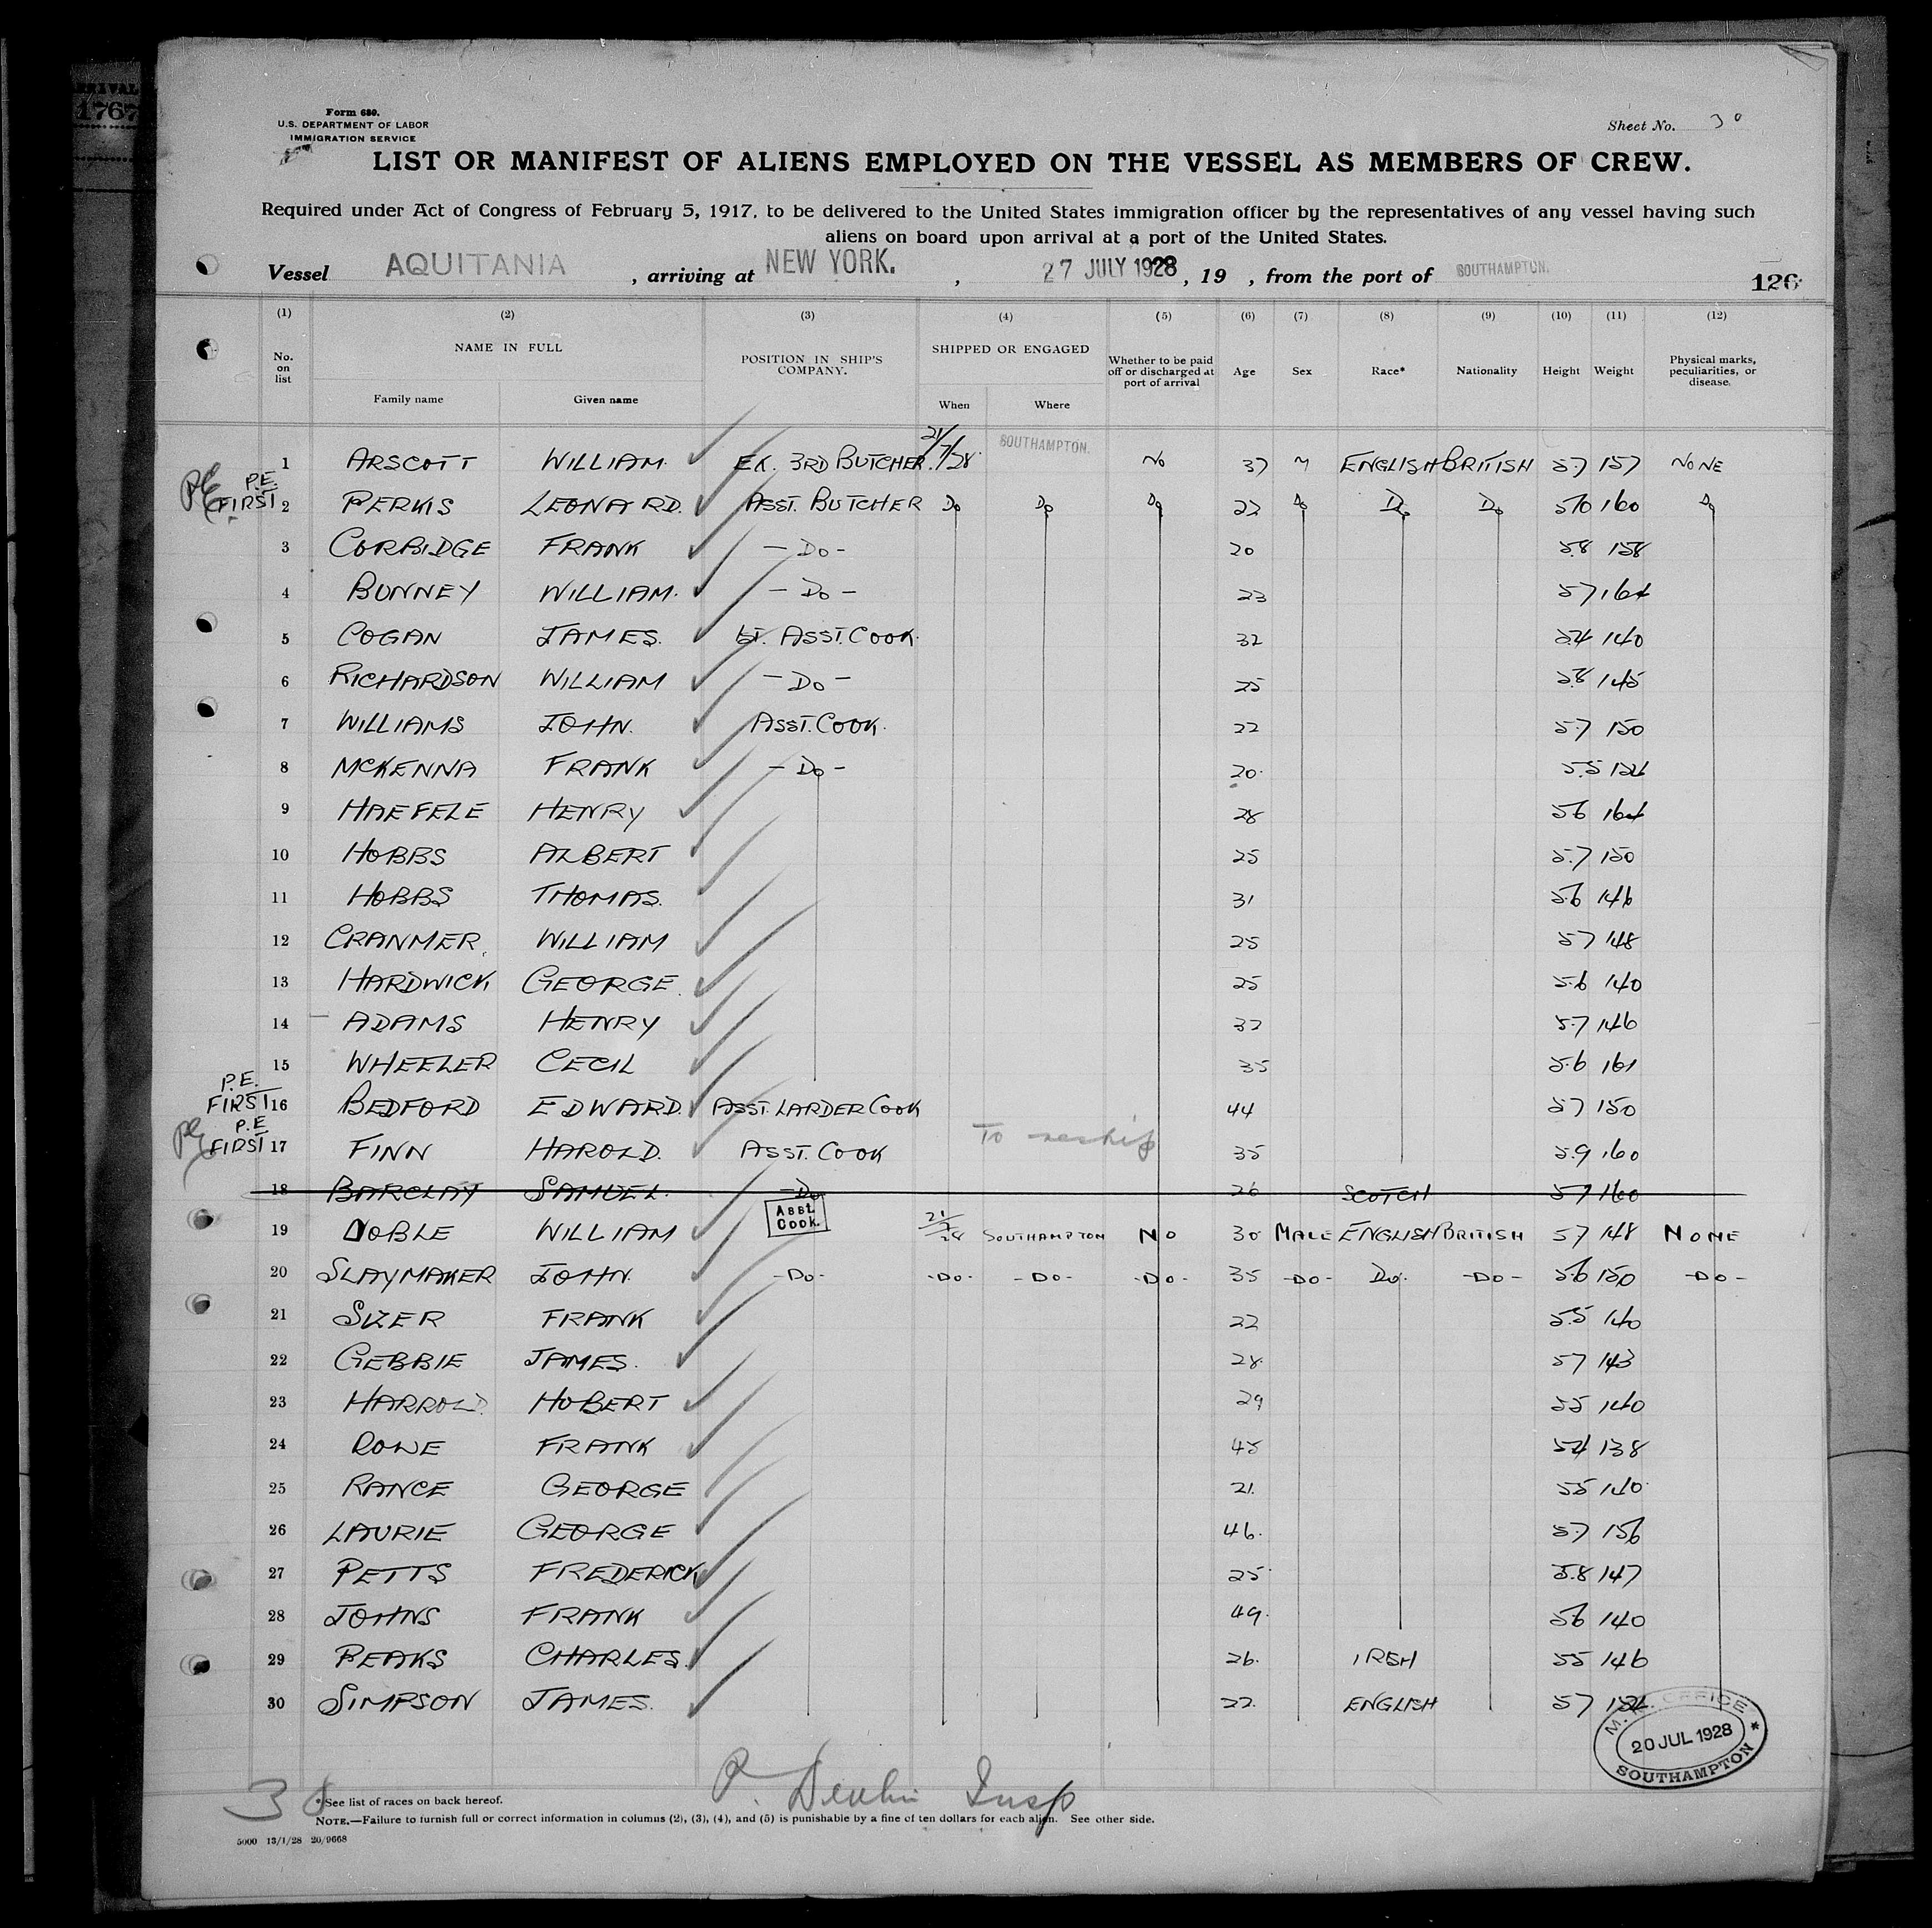 RRIVAL
1767
Form 680.
U.S. DEPARTMENT OF LABOR
IMMIGRATION SERVICE
Sheet No. 30
LIST OR MANIFEST OF ALIENS EMPLOYED ON THE VESSEL AS MEMBERS OF CREW.
Required under Act of Congress of February 5, 1917, to be delivered to the United States immigration officer by the representatives of any vessel having such
aliens on board upon arrival at a port of the United States.
Vessel AQUITANIA, arriving at NEW YORK., 27 JULY 1928, 19 , from the port of SOUTHAMPTON.
126
(1) (2) (3) (4) (5) (6) (7) (8) (9) (10) (11) (12)
No. on list NAME IN FULL POSITION IN SHIP'S COMPANY. SHIPPED OR ENGAGED Whether to be paid off or discharged at port of arrival Age Sex Race* Nationality Height Weight Physical marks, peculiarities, or disease.
Family name Given name When Where
1 ARSCOTT WILLIAM. EX. 3RD BUTCHER. 21/7/28 SOUTHAMPTON. No 37 M ENGLISH BRITISH 5.7 157 NONE
P.E. FIRST 2 PERKIS LEONARD. ASST. BUTCHER Do Do Do 22 Do Do Do 5.10 160 Do
3 CORBIDGE FRANK - Do - 20 5.8 158
4 BUNNEY WILLIAM. - Do - 23 5.7 164
5 COGAN JAMES. ASST. COOK. 32 5.4 140
6 RICHARDSON WILLIAM - Do - 25 5.8 145
7 WILLIAMS JOHN. ASST. COOK. 22 5.7 150
8 MCKENNA FRANK - Do - 20. 5.5
9 HAEFELE HENRY 28 5.6 164
10 HOBBS ALBERT 25 5.7 150
11 HOBBS THOMAS. 31 5.6 146
12 CRANMER WILLIAM 25 5.7 148
13 HARDWICK GEORGE. 25 5.6 140
14 ADAMS HENRY 32 5.7 146
15 WHEELER CECIL 35 5.6 161
P.E. FIRST 16 BEDFORD EDWARD. ASST. LARDER COOK 44 5.7 150
P.E FIRST 17 FINN HAROLD. ASST. COOK To reship 35 5.9 160
18 BARCLAY SAMUEL. - Do 26 SCOTCH 5.7 160
19 DOBLE WILLIAM Asst. Cook. 21/7/28 SOUTHAMPTON No 30 MALE ENGLISH BRITISH 5.7 148 NONE
20 SLAYMAKER JOHN. -Do- -Do- -Do- -Do- 35 -Do- Do. -Do- 5.6 150 -Do-
21 SIZER FRANK 22 5.5 140
22 GEBBIE JAMES. 28. 5.7 143
23 HARROLD. HUBERT 29 5.5 140
24 ROWE FRANK 45 5.4 138
25 RANCE GEORGE 21. 5.5 140.
26 LAURIE GEORGE 46. 5.7 156
27 PETTS FREDERICK 25 5.8 147
28 JOHNS FRANK 49. 5.6 140
29 PEAKS CHARLES. 26. IRISH 5.5 146
30 SIMPSON JAMES. 22. ENGLISH 5.7
M. OFFICE
20 JUL 1928
SOUTHAMPTON
30
P. Devlin Insp
* See list of races on back hereof.
NOTE.—Failure to furnish full or correct information in columns (2), (3), (4), and (5) is punishable by a fine of ten dollars for each alien. See other side.
5000 13/1/28 20/9668